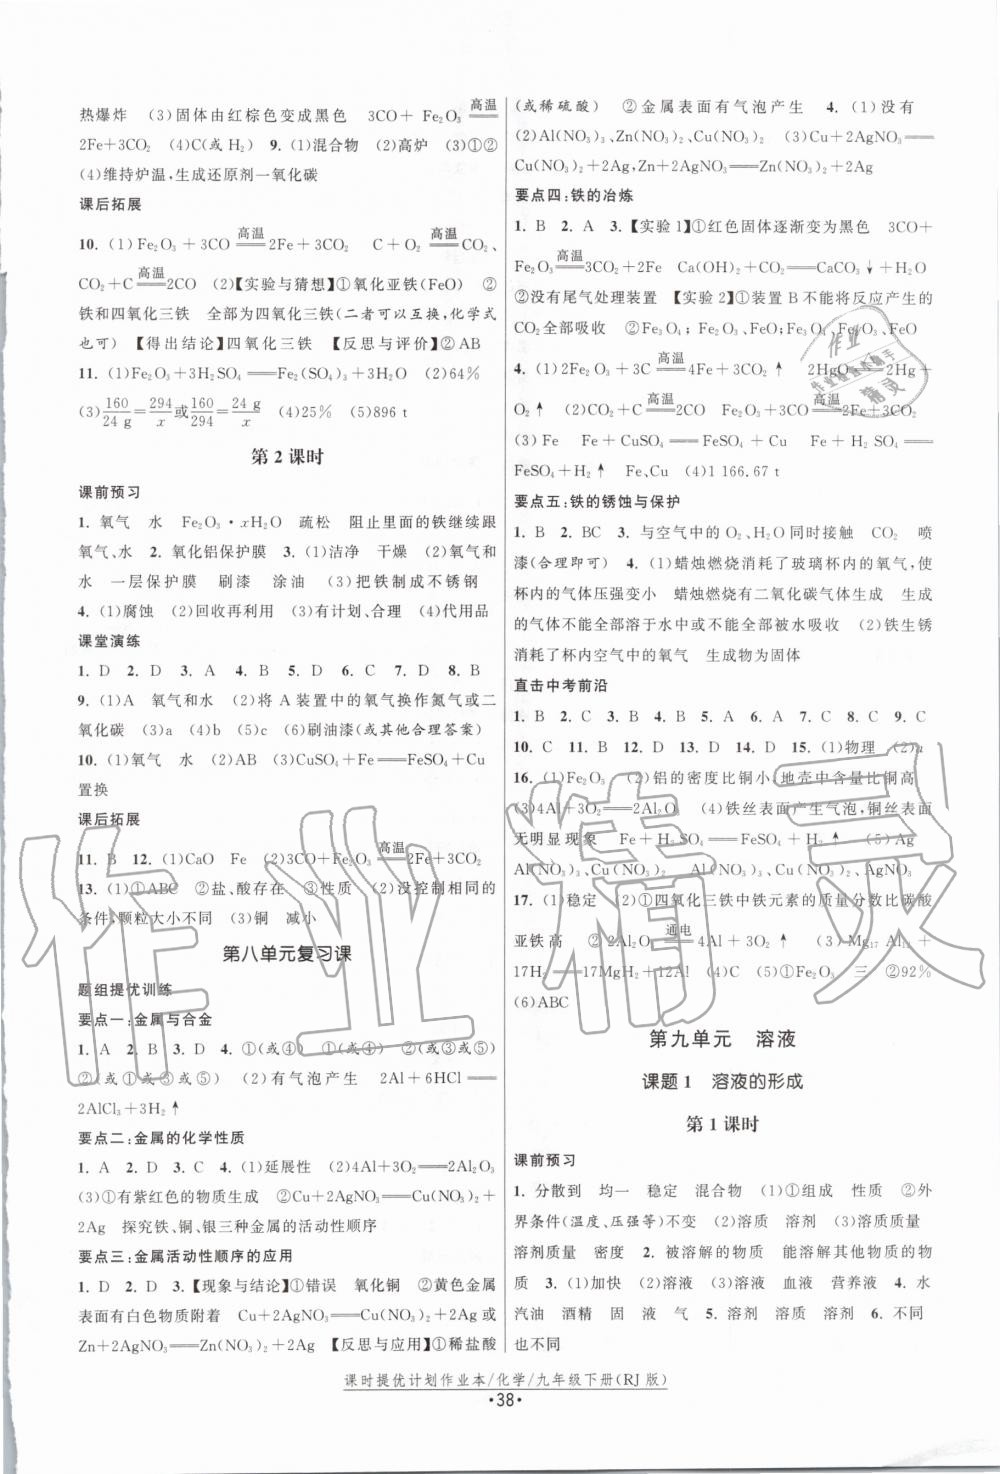 热爆炸 (3)固体由红棕色变成黑色 3CO+Fe₂O₃ ══高温══
2Fe+3CO₂ (4)C(或 H₂) 9. (1)混合物 (2)高炉 (3)①②
(4)维持炉温,生成还原剂一氧化碳
课后拓展
10. (1)Fe₂O₃+3CO ══高温══ 2Fe+3CO₂ C+O₂ ══高温══ CO₂、
CO₂+C ══高温══ 2CO (2)【实验与猜想】①氧化亚铁(FeO) ②
铁和四氧化三铁 全部为四氧化三铁(二者可以互换,化学式
也可) 【得出结论】四氧化三铁 【反思与评价】②AB
11. (1)Fe₂O₃+3H₂SO₄ ══ Fe₂(SO₄)₃+3H₂O (2)64%
(3)160/24 g=294/x或160/294=24 g/x (4)25% (5)896 t
第 2 课时
课前预习
1. 氧气 水 Fe₂O₃·xH₂O 疏松 阻止里面的铁继续跟
氧气、水 2. 氧化铝保护膜 3. (1)洁净 干燥 (2)氧气和
水 一层保护膜 刷漆 涂油 (3)把铁制成不锈钢
4. (1)腐蚀 (2)回收再利用 (3)有计划、合理 (4)代用品
课堂演练
1. D 2. D 3. A 4. B 5. D 6. C 7. D 8. B
9. (1)A 氧气和水 (2)将 A 装置中的氧气换作氮气或二
氧化碳 (3)a (4)b (5)c (6)刷油漆(或其他合理答案)
10. (1)氧气 水 (2)AB (3)CuSO₄+Fe ══ FeSO₄+Cu
置换
课后拓展
11. B 12. (1)CaO Fe (2)3CO+Fe₂O₃ ══高温══ 2Fe+3CO₂
13. (1)①ABC ②盐、酸存在 ③性质 (2)没控制相同的
条件,颗粒大小不同 (3)铜 减小
第八单元复习课
题组提优训练
要点一:金属与合金
1. A 2. B 3. D 4. ①(或④) ①(或④) ②(或③或⑤)
②(或①或③或⑤) (2)有气泡产生 2Al+6HCl ══
2AlCl₃+3H₂↑
要点二:金属的化学性质
1. A 2. D 3. C 4. (1)延展性 (2)4Al+3O₂ ══ 2Al₂O₃
(3)①有紫红色的物质生成 ②Cu+2AgNO₃ ══ Cu(NO₃)₂+
2Ag 探究铁、铜、银三种金属的活动性顺序
要点三:金属活动性顺序的应用
1. D 2. D 3. 【现象与结论】①错误 氧化铜 ②黄色金属
表面有白色物质附着 Cu+2AgNO₃ ══ Cu(NO₃)₂+2Ag或
Zn+2AgNO₃ ══ Zn(NO₃)₂+2Ag 【反思与应用】①稀盐酸
(或稀硫酸) ②金属表面有气泡产生 4. (1)没有
(2)Al(NO₃)₃、Zn(NO₃)₂、Cu(NO₃)₂ (3)Cu+2AgNO₃ ══
Cu(NO₃)₂+2Ag,Zn+2AgNO₃ ══ Zn(NO₃)₂+2Ag
要点四:铁的冶炼
1. B 2. A 3. 【实验 1】①红色固体逐渐变为黑色 3CO+
Fe₂O₃ ══高温══ 3CO₂+2Fe Ca(OH)₂+CO₂ ══ CaCO₃↓+H₂O
②没有尾气处理装置 【实验 2】①装置 B 不能将反应产生的
CO₂全部吸收 ②Fe₃O₄;Fe₃O₄、FeO;Fe₂O₃、Fe₃O₄、FeO
4. (1)2Fe₂O₃+3C ══高温══ 4Fe+3CO₂↑ 2HgO ══ 2Hg+
O₂↑ (2)CO₂+C ══高温══ 2CO Fe₂O₃+3CO ══高温══ 2Fe+3CO₂
(3)Fe Fe+CuSO₄ ══ FeSO₄+Cu Fe+H₂SO₄ ══
FeSO₄+H₂↑ Fe、Cu (4)1 166.67 t
要点五:铁的锈蚀与保护
1. B 2. BC 3. 与空气中的 O₂、H₂O同时接触 CO₂ 喷
漆(合理即可) 4. (1)蜡烛燃烧消耗了玻璃杯内的氧气,使
杯内的气体压强变小 蜡烛燃烧有二氧化碳气体生成 生成
的气体不能全部溶于水中或不能全部被水吸收 (2)铁生锈
消耗了杯内空气中的氧气 生成物为固体
直击中考前沿
1. B 2. C 3. B 4. B 5. A 6. A 7. C 8. C 9. C
10. C 11. B 12. D 13. D 14. D 15. (1)物理 (2)a
16. (1)Fe₂O₃ (2)铝的密度比铜小、地壳中含量比铜高
(3)4Al+3O₂ ══ 2Al₂O₃ (4)铁丝表面产生气泡,铜丝表面
无明显现象 Fe+H₂SO₄ ══ FeSO₄+H₂↑ (5)Ag
Al(NO₃)₃、Cu(NO₃)₂ Al(NO₃)₃、Cu(NO₃)₂、AgNO₃
17. (1)稳定 (2)①四氧化三铁中铁元素的质量分数比碳酸
亚铁高 ②2Al₂O₃ ══通电══ 4Al+3O₂↑ (3)Mg₁₇Al₁₂+
17H₂ ══ 17MgH₂+12Al (4)C (5)①Fe₂O₃ 三 ②92%
(6)ABC
第九单元 溶液
课题 1 溶液的形成
第 1 课时
课前预习
1. 分散到 均一 稳定 混合物 (1)①组成 性质 ②外
界条件(温度、压强等)不变 (2)溶质 溶剂 (3)溶质质量
溶剂质量 密度 2. 被溶解的物质 能溶解其他物质的物
质 3. (1)加快 (2)溶液 (3)溶液 血液 营养液 4. 水
汽油 酒精 固 液 气 5. 溶剂 溶质 溶剂 6. 不同
也不同
课时提优计划作业本/化学/九年级下册(RJ 版)
·38·
作业精灵
作业
精灵